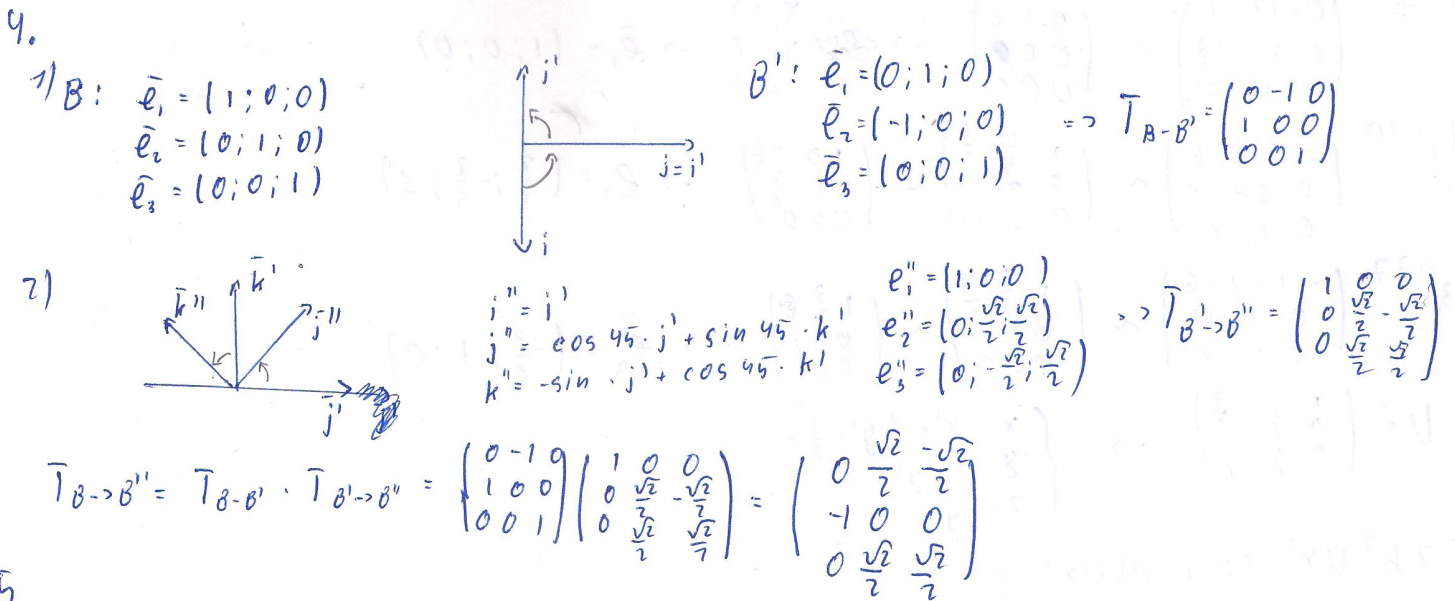 4.
1) B: ē₁ = (1; 0; 0)
ē₂ = (0; 1; 0)
ē₃ = (0; 0; 1)
j'
j = i'
i
B': ē₁ = (0; 1; 0)
ē₂ = (-1; 0; 0)
ē₃ = (0; 0; 1)
=> T B-B' = ( 0 -1 0
1 0 0
0 0 1 )
2)
k̄''
k̄'
j̄''
j̄'
i'' = i'
j'' = cos 45 · j' + sin 45 · k'
k'' = -sin · j' + cos 45 · k'
e₁'' = (1; 0; 0)
e₂'' = (0; √2/2; √2/2)
e₃'' = (0; -√2/2; √2/2)
=> T B'->B'' = ( 1 0 0
0 √2/2 -√2/2
0 √2/2 √2/2 )
T B->B'' = T B-B' · T B'->B'' = ( 0 -1 0
1 0 0
0 0 1 ) ( 1 0 0
0 √2/2 -√2/2
0 √2/2 √2/2 ) = ( 0 √2/2 -√2/2
-1 0 0
0 √2/2 √2/2 )